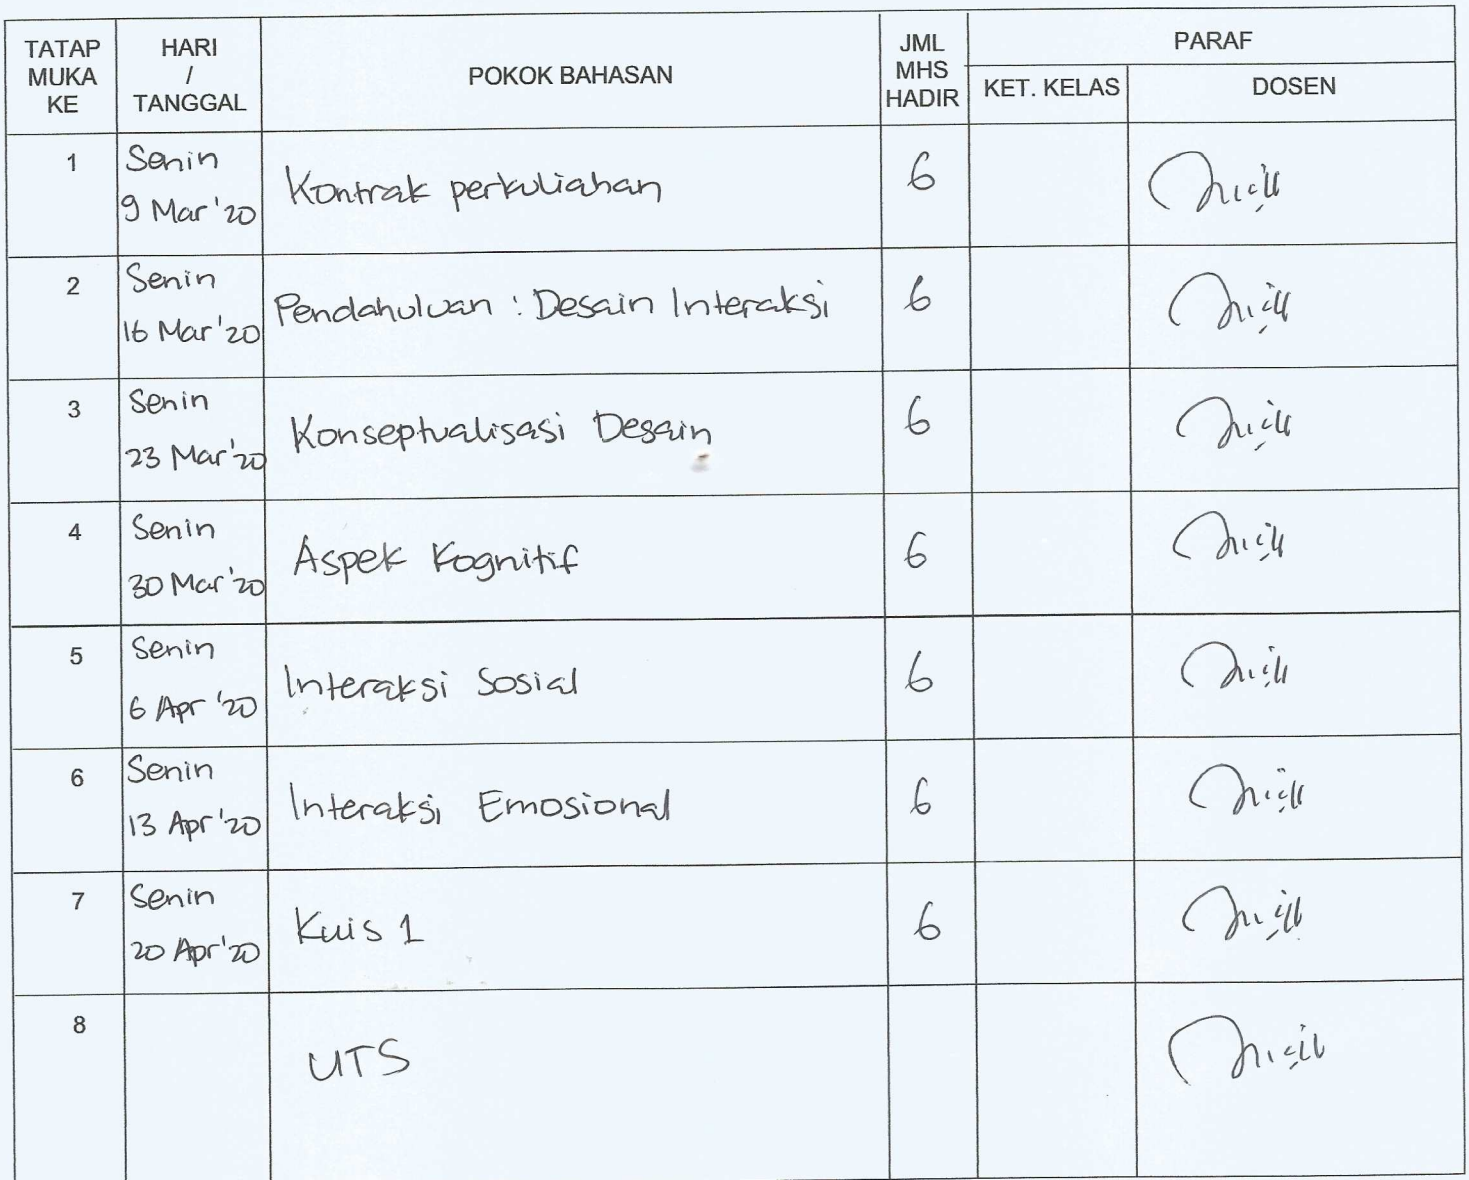 TATAP MUKA KE
HARI / TANGGAL
POKOK BAHASAN
JML MHS HADIR
PARAF
KET. KELAS
DOSEN
1
Senin
9 Mar '20
Kontrak perkuliahan
6
2
Senin
16 Mar '20
Pendahuluan : Desain Interaksi
6
3
Senin
23 Mar '20
Konseptualisasi Desain
6
4
Senin
30 Mar '20
Aspek Kognitif
6
5
Senin
6 Apr '20
Interaksi Sosial
6
6
Senin
13 Apr '20
Interaksi Emosional
6
7
Senin
20 Apr '20
Kuis 1
6
8
UTS